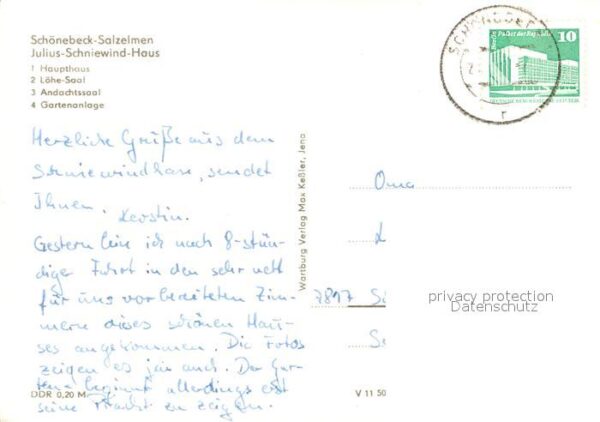 Schönebeck-Salzelmen
Julius-Schniewind-Haus
1 Haupthaus
2 Löhe-Saal
3 Andachtssaal
4 Gartenanlage
Herzliche Grüße aus dem
Schniewindhaus, sendet
Ihnen,
Kerstin.
Gestern bin ich nach 8-stün-
diger Fahrt in den sehr nett
für uns vorbereiteten Zim-
mern dieses schönen Hau-
ses angekommen. Die Fotos
zeigen es ja auch. Der Gar-
ten beginnt allerdings erst
seine Pracht zu zeigen.
DDR 0,20 M
V 11 50
Wartburg Verlag Max Keßler, Jena
Berlin Palast der Republik
10
DEUTSCHE DEMOKRATISCHE REPUBLIK
Oma
L
7817 S
S
privacy protection
Datenschutz